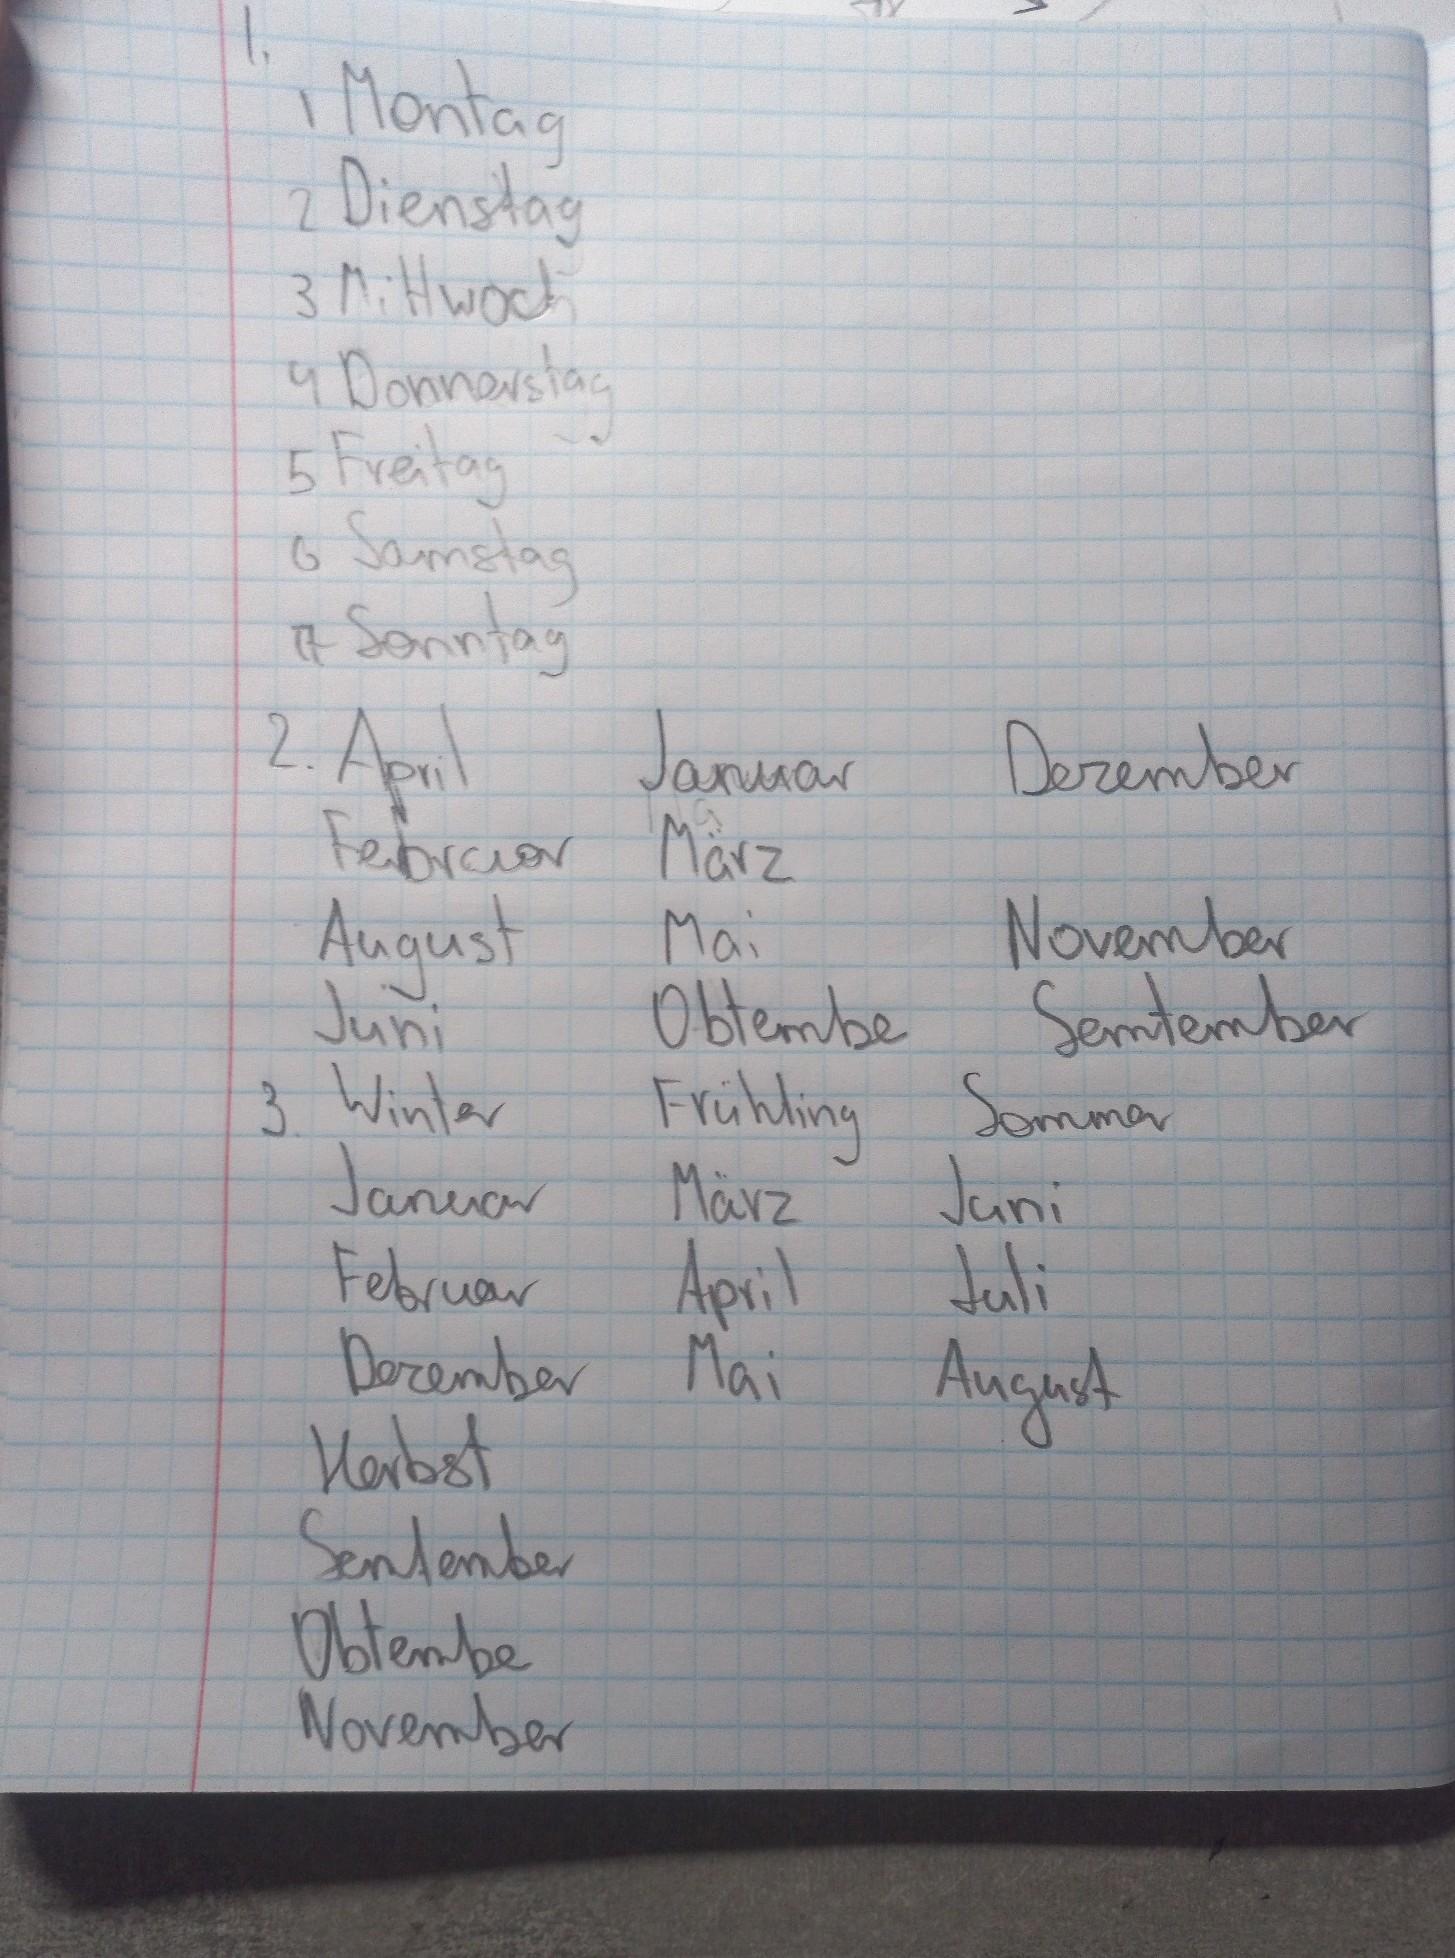 1.
1 Montag
2 Dienstag
3 Mittwoch
4 Donnerstag
5 Freitag
6 Samstag
7 Sonntag
2. April Januar Dezember
Februar März
August Mai November
Juni Obtembe Semtember
3. Winter Frühling Sommer
Januar März Juni
Februar April Juli
Dezember Mai August
Herbst
Semtember
Obtembe
November